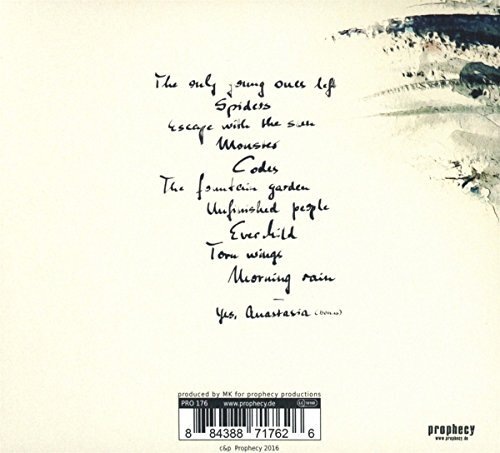 The only young ones left
Spiders
Escape with the sun
Monster
Codes
The fountain garden
Unfinished people
Everchild
Torn wings
Morning rain
Yes, Anastasia (bonus)
produced by MK for prophecy productions
PRO 176 www.prophecy.de
8 84388 71762 6
c&p Prophecy 2016
prophecy
www.prophecy.de